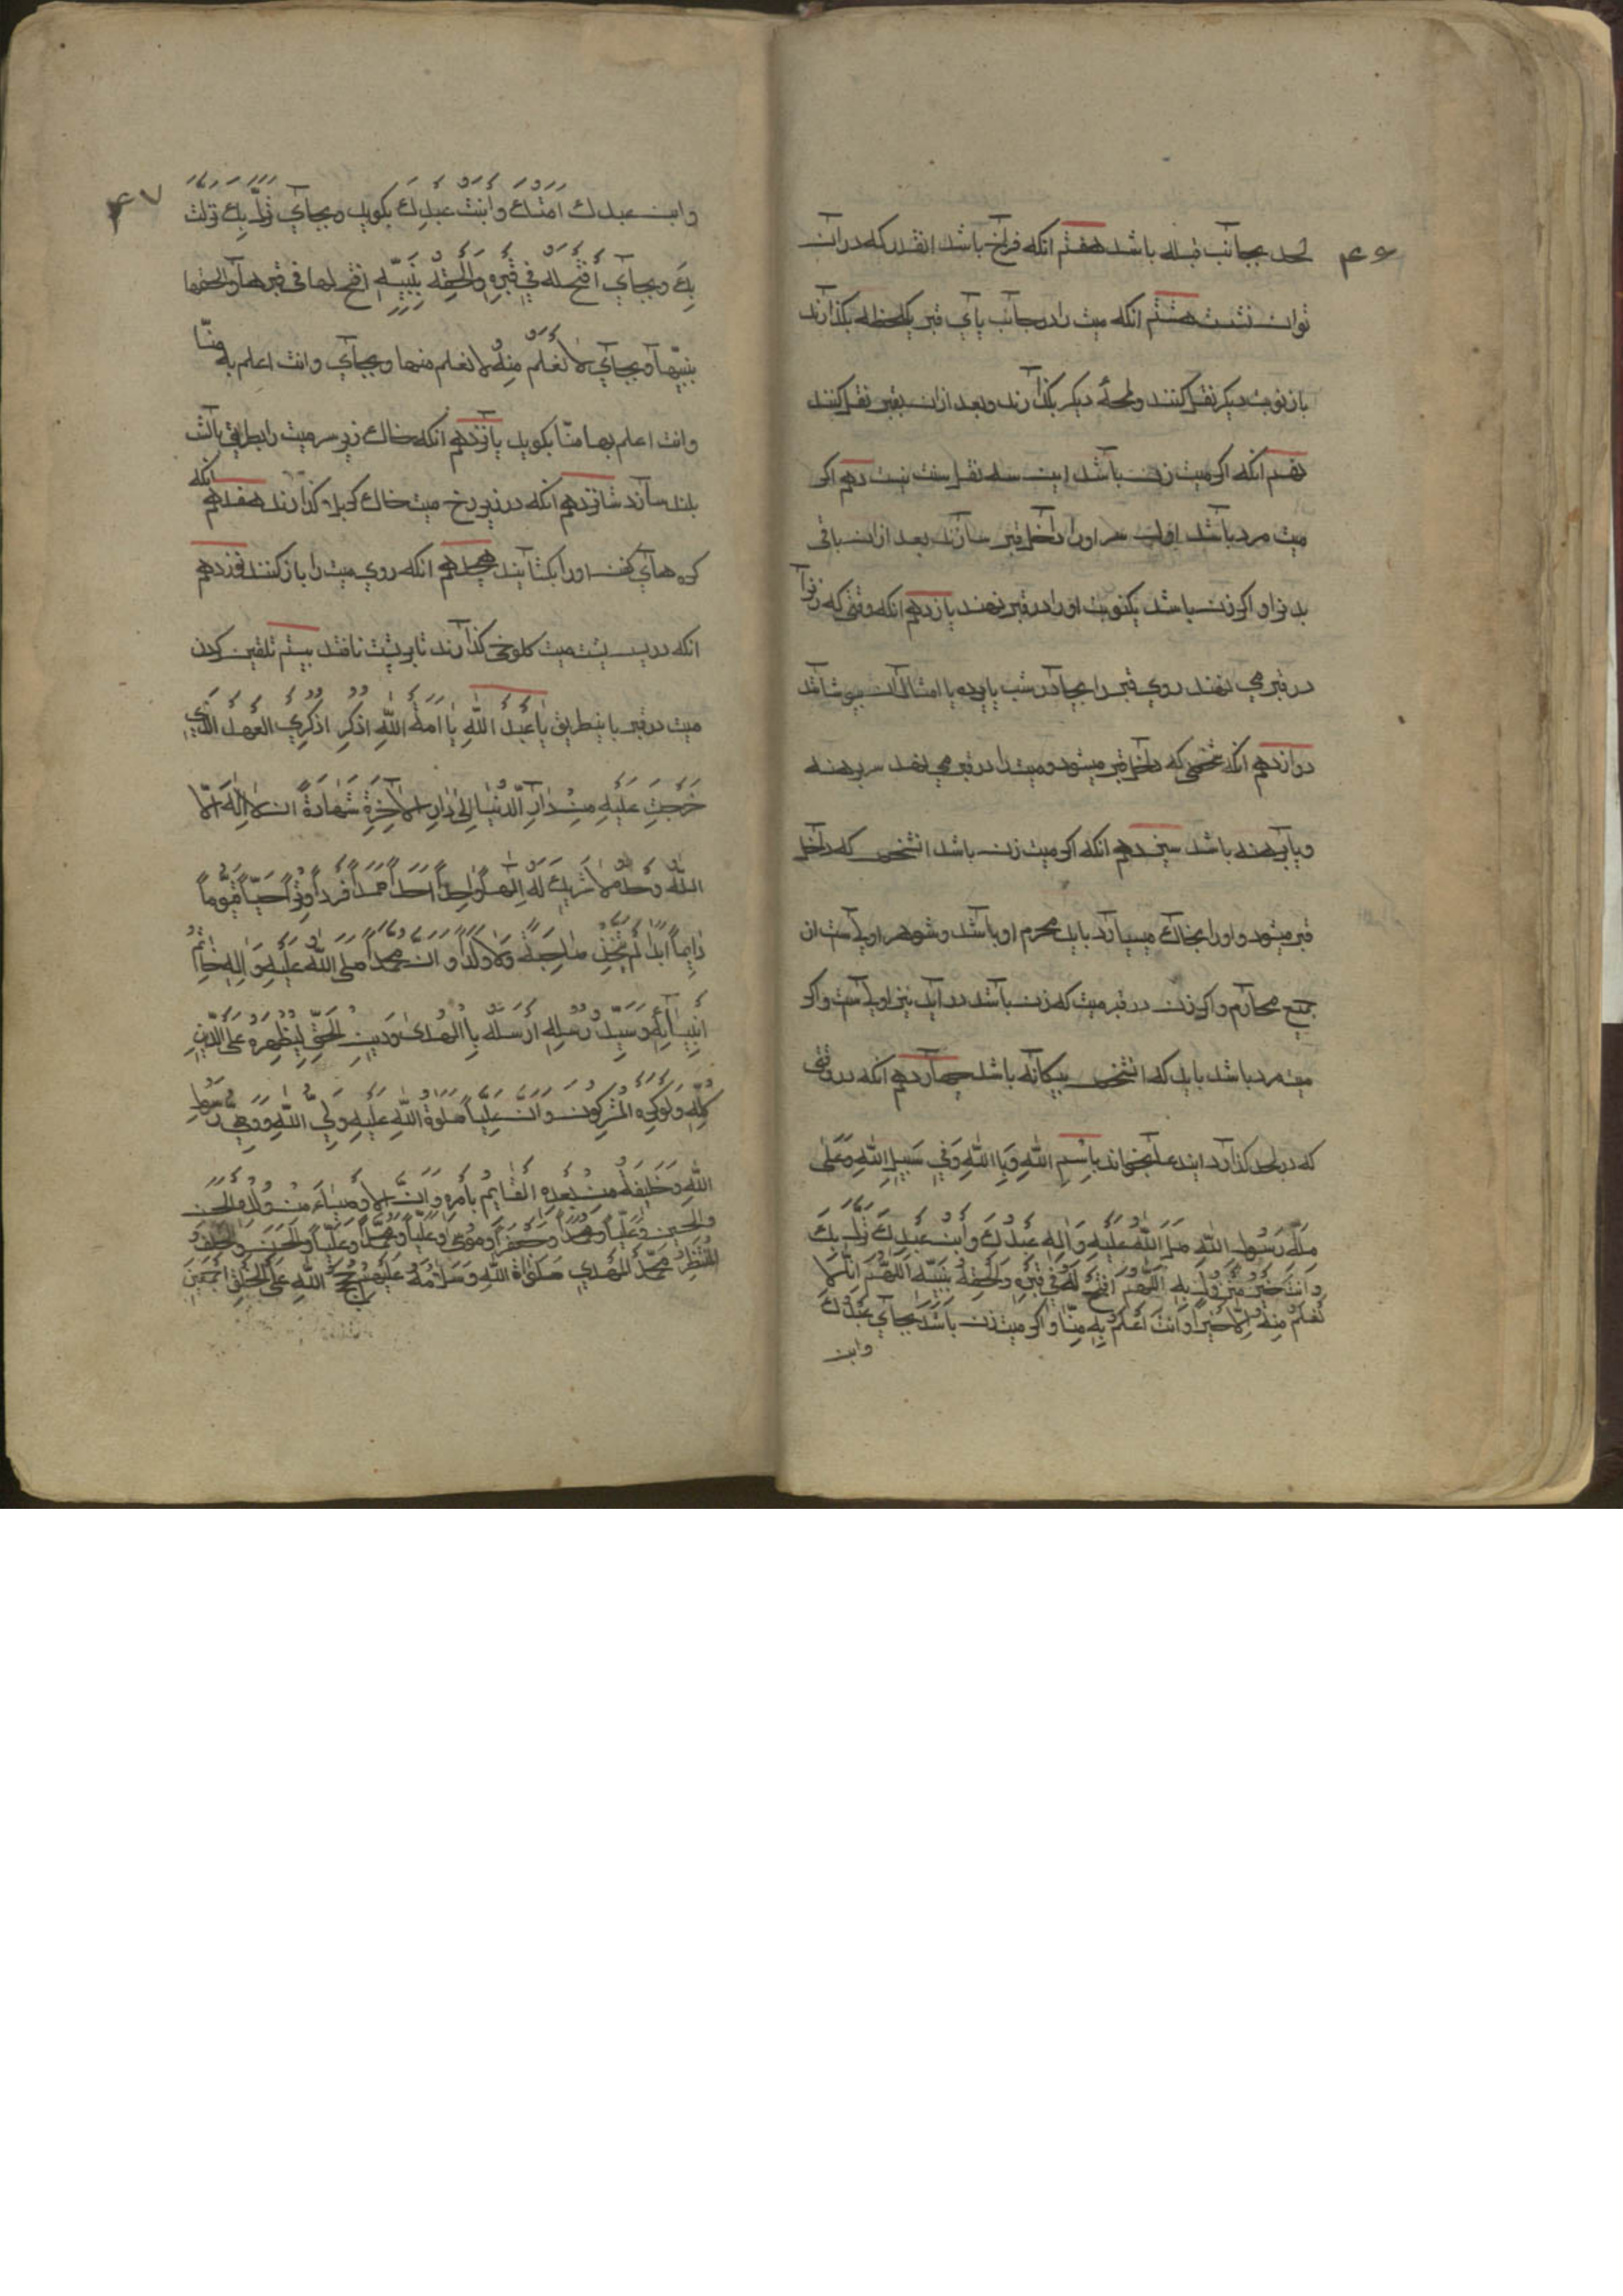 ۴۶
لحد بجانب قبله باشد هفتم انکه فراخ باشد انقدر که در ان
توان نشست هشتم انکه میت را در جانب پای قبر یکلحظه بکذارند
باز نوبت دیکر نقل کنند ولمحهٔ دیکر بکذارند وبعد ازان بقبر نقل کنند
انکه اکر میت زن باشد این سه نقل سنت نیست دهم اکر
میت مرد باشد اول سر او را داخل قبر سازند بعد ازان باقی
بدن او واکر زن باشد یکنوبت او را در قبر نهند یازدهم انکه وقتی که زنرا
در قبر می نهند روی قبر را بچادر شب یا پرده یا امثال آن بپوشانند
دوازدهم انکه شخصی که داخل قبر میشود ومیت را در قبر می نهد سر برهنه
وپا برهنه باشد سیزدهم انکه اکر میت زن باشد انشخص که داخل
قبر میشود و او را بخاک میسپارد باید محرم او باشد وشوهر اولیست از
جمیع محارم واکر زن در قبر میت که زن باشد در آید نیز اولیست واکر
میت مرد باشد باید که انشخص بیکانه باشد چهاردهم انکه در وقتی
که در لحد کذارد ایندعا بخواند بِاسْمِ اللّٰهِ وَبِا اللّٰهِ وَفِي سَبِيلِ اللّٰهِ وَعَلٰى
مِلَّةِ رَسُولِ اللّٰهِ صَلَّى اللّٰهُ عَلَيْهِ وَاٰلِهِ عَبْدُكَ وَابْنُ عَبْدِكَ نَزَلَ بِكَ
وَاَنْتَ خَيْرُ مَنْزُولٍ بِهِ اَللّٰهُمَّ افْسَحْ لَهُ فِي قَبْرِهِ وَاَلْحِقْهُ بِنَبِيِّهِ اَللّٰهُمَّ اِنَّا لَا
نَعْلَمُ مِنْهُ اِلَّا خَيْرًا وَاَنْتَ اَعْلَمُ بِهِ مِنَّا واکر میت زن باشد بجای عَبْدُكَ
وابن
۴۷
وابن عبدك اَمَتُكَ وَابْنَتُ عَبْدِكَ بکوید وبجای نَزَلَ بِكَ نزلت
بِكَ وبجای اَفْسَحْ لَهُ فِي قَبْرِهِ وَاَلْحِقْهُ بِنَبِيِّهِ افسح لها فی قبرها والحقها
بنبیّها وبجای لَا نَعْلَمُ مِنْهُ لا نعلم منها وبجای وانت اعلم به منّا
وانت اعلم بها منّا بکوید پانزدهم انکه خاك زیر سر میت را بطریق بالش
بلند سازد شانزدهم انکه در زیر رخ میت خاك کربلا کذارند هفدهم انکه
کره های کفن او را بکشایند هجدهم انکه روی میت را باز کنند نوزدهم
انکه در پس پشت میت کلوخی کذارند تا بر پشت نافتد بیستم تلقین کردن
میت در قبر باینطریق يَا عَبْدَ اللّٰهِ يَا اَمَةَ اللّٰهِ اُذْكُرِ اُذْكُرِي الْعَهْدَ الَّذِي
خَرَجْتَ عَلَيْهِ مِنْ دَارِ الدُّنْيَا اِلٰى دَارِ الْاٰخِرَةِ شَهَادَةَ اَنْ لَا اِلٰهَ اِلَّا
اللّٰهُ وَحْدَهُ لَا شَرِيكَ لَهُ اِلٰهًا وَاحِدًا اَحَدًا صَمَدًا فَرْدًا وِتْرًا حَيًّا قَيُّومًا
دَايِمًا اَبَدًا لَمْ يَتَّخِذْ صَاحِبَةً وَلَا وَلَدًا وَاَنَّ مُحَمَّدًا صَلَّى اللّٰهُ عَلَيْهِ وَاٰلِهِ خَاتَمُ
اَنْبِيَآئِهِ وَسَيِّدُ رُسُلِهِ اَرْسَلَهُ بِا الْهُدٰى وَدِينِ الْحَقِّ لِيُظْهِرَهُ عَلَى الدِّينِ
كُلِّهِ وَلَوْ كَرِهَ الْمُشْرِكُونَ وَاَنَّ عَلِيًّا صَلَوةُ اللّٰهِ عَلَيْهِ وَلِيُّ اللّٰهِ وَوَصِيُّ رَسُولِ
اللّٰهِ وَخَلِيفَتُهُ مِنْ بَعْدِهِ الْقَايِمُ بِاَمْرِهِ وَاَنَّ الْاَوْصِيَاءَ مِنْ وُلْدِهِ الْحَسَنَ
وَالْحُسَيْنَ وَعَلِيًّا وَمُحَمَّدًا وَجَعْفَرًا وَمُوسٰى وَعَلِيًّا وَمُحَمَّدًا وَعَلِيًّا وَالْحَسَنَ وَالْخَلَفَ
الْمُنْتَظَرَ مُحَمَّدَ الْمَهْدِيَّ صَلَوَاةُ اللّٰهِ وَسَلَامُهُ عَلَيْهِمْ حُجَجُ اللّٰهِ عَلَى الْخَلْقِ اَجْمَعِينَ